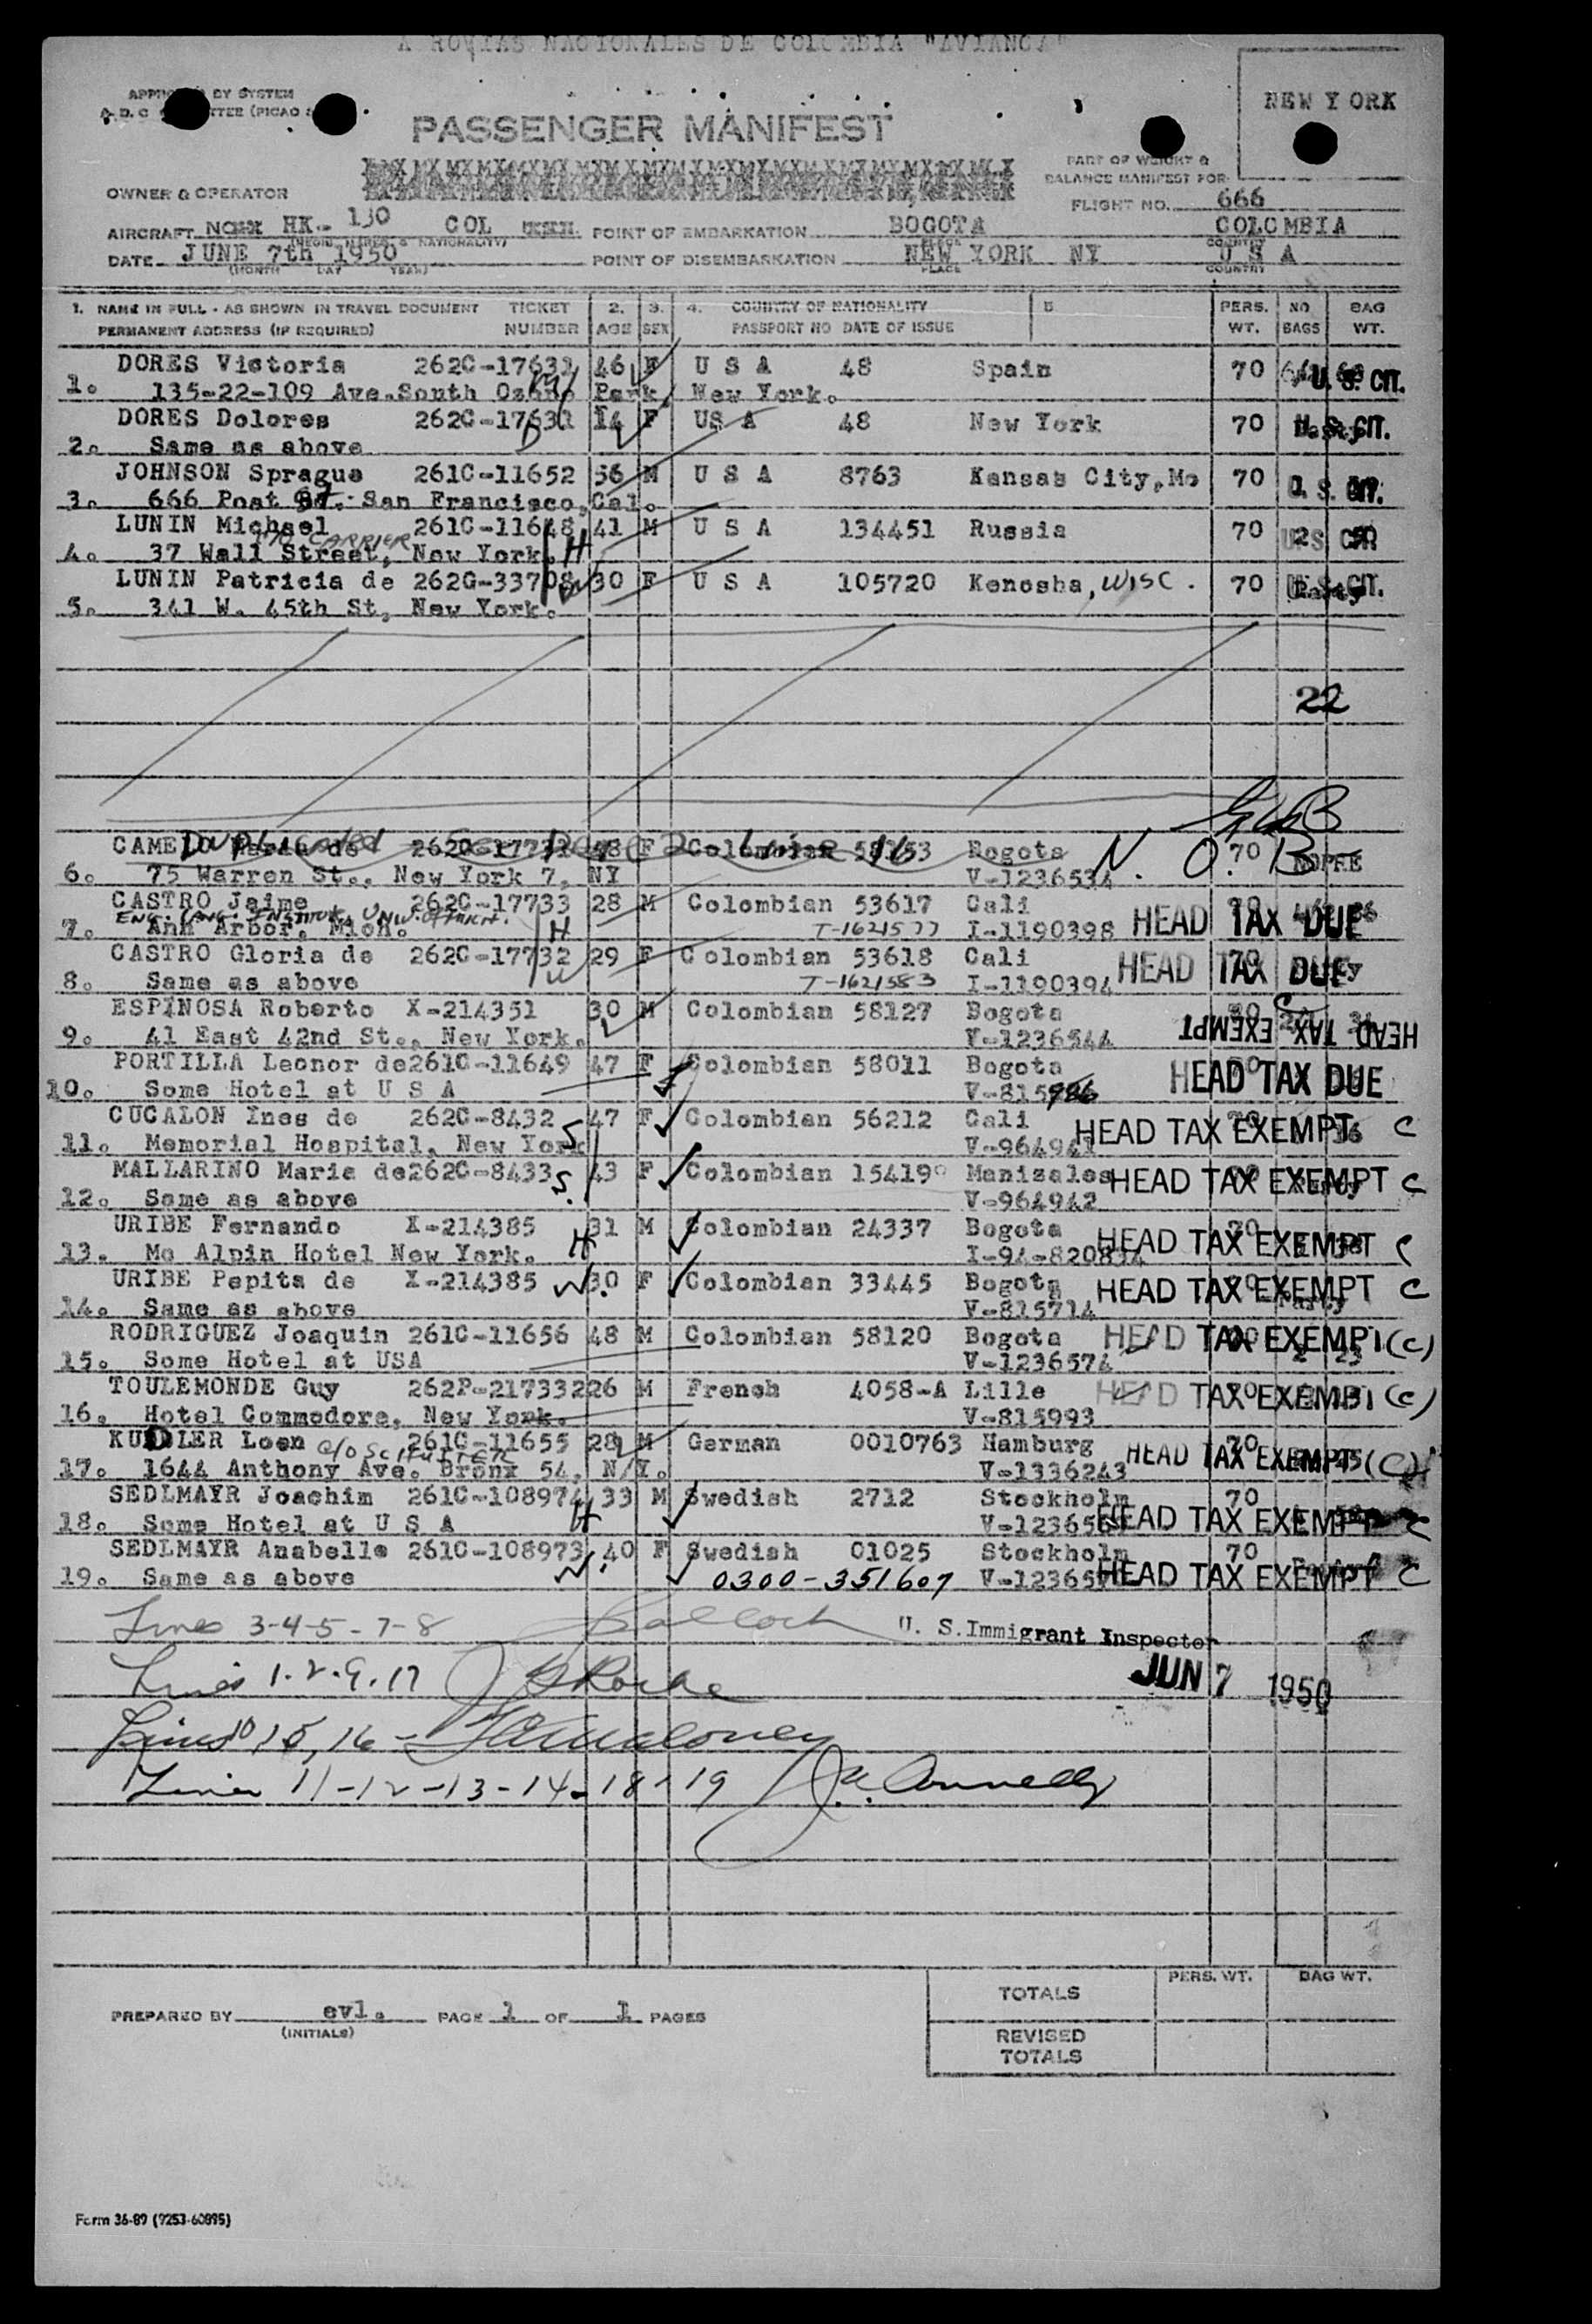 A ROVIAS NACIONALES DE COLOMBIA "AVIANCA"
NEW YORK
PASSENGER MANIFEST
PART OF WEIGHT &
BALANCE MANIFEST FOR
OWNER & OPERATOR
FLIGHT NO. 666
AIRCRAFT HK- 130 COL POINT OF EMBARKATION BOGOTA COLOMBIA
DATE JUNE 7th 1950 POINT OF DISEMBARKATION NEW YORK NY U S A
(MONTH DAY YEAR) PLACE COUNTRY
1. NAME IN FULL - AS SHOWN IN TRAVEL DOCUMENT TICKET 2. 3. 4. COUNTRY OF NATIONALITY 5 PERS. NO BAG
PERMANENT ADDRESS (IF REQUIRED) NUMBER AGE SEX PASSPORT NO DATE OF ISSUE WT. BAGS WT.
DORES Victoria 262C-17631 46 F U S A 48 Spain 70 U. S. CIT.
1. 135-22-109 Ave. South Ozone Park, New York.
DORES Dolores 262C-17631 14 F US A 48 New York 70 U. S. CIT.
2. Same as above
JOHNSON Sprague 261C-11652 56 M U S A 8763 Kansas City, Mo 70 U. S. CIT.
3. 666 Post St. San Francisco, Cal.
LUNIN Michael 261C-11648 41 M U S A 134451 Russia 70 U. S. CIT.
CARRIER
4. 37 Wall Street, New York. H
LUNIN Patricia de 262G-33708 W 30 F U S A 105720 Kenosha, WISC. 70 U. S. CIT.
5. 341 W. 45th St, New York.
22
Duplicated See Page 2 - Line 16
CAMELO Maria de 262C-17731 48 F Colombian 58153 Bogota N. O. B 70
6. 75 Warren St., New York 7, NY V-1236534
CASTRO Jaime 262C-17733 28 M Colombian 53617 Cali HEAD TAX DUE
ENG. LANG. INSTITUTE, UNIV. OF MICH.
7. Ann Arbor, Mich. H T-1621577 I-1190398
CASTRO Gloria de 262C-17732 29 F Colombian 53618 Cali HEAD TAX DUE
8. Same as above W T-1621583 I-1190394
ESPINOSA Roberto X-214351 30 M Colombian 58127 Bogota
9. 41 East 42nd St., New York. V-1236544 HEAD TAX EXEMPT
PORTILLA Leonor de 261C-11649 47 F Colombian 58011 Bogota HEAD TAX DUE
10. Some Hotel at U S A V-815986
CUCALON Ines de 262C-8432 47 F Colombian 56212 Cali HEAD TAX EXEMPT C
11. Memorial Hospital, New York S V-964941
MALLARINO Maria de 262C-8433 S. 43 F Colombian 15419 Manizales HEAD TAX EXEMPT C
12. Same as above V-964942
URIBE Fernando X-214385 31 M Colombian 24337 Bogota HEAD TAX EXEMPT C
13. Mc Alpin Hotel New York. H I-94-820834
URIBE Pepita de X-214385 W. 30 F Colombian 33445 Bogota HEAD TAX EXEMPT C
14. Same as above V-815714
RODRIGUEZ Joaquin 261C-11656 48 M Colombian 58120 Bogota HEAD TAX EXEMPT (C)
15. Some Hotel at USA V-1236574
TOULEMONDE Guy 262P-217332 26 M French 4058-A Lille HEAD TAX EXEMPT (C)
16. Hotel Commodore, New York. V-815993
KUDLER Loen 261C-11655 28 M German 0010763 Hamburg 70 HEAD TAX EXEMPT (C)
c/o SCHUSTER
17. 1644 Anthony Ave. Bronx 54, N/Y. V-1336243
SEDLMAYR Joachim 261C-108974 33 M Swedish 2712 Stockholm 70
18. Some Hotel at U S A H HEAD TAX EXEMPT C
SEDLMAYR Anabelle 261C-108973 40 F Swedish 01025 Stockholm 70
19. Same as above W. 0300-351607 HEAD TAX EXEMPT C
Lines 3-4-5-7-8 U. S. Immigrant Inspector
Lines 1.2.9.17 JUN 7 1950
Lines 10 15, 16 -
Lines 11-12-13-14-18-19
TOTALS PERS. WT. BAG WT.
PREPARED BY evl. PAGE 1 OF 1 PAGES
(INITIALS)
REVISED
TOTALS
Form 36-89 (9253-60895)